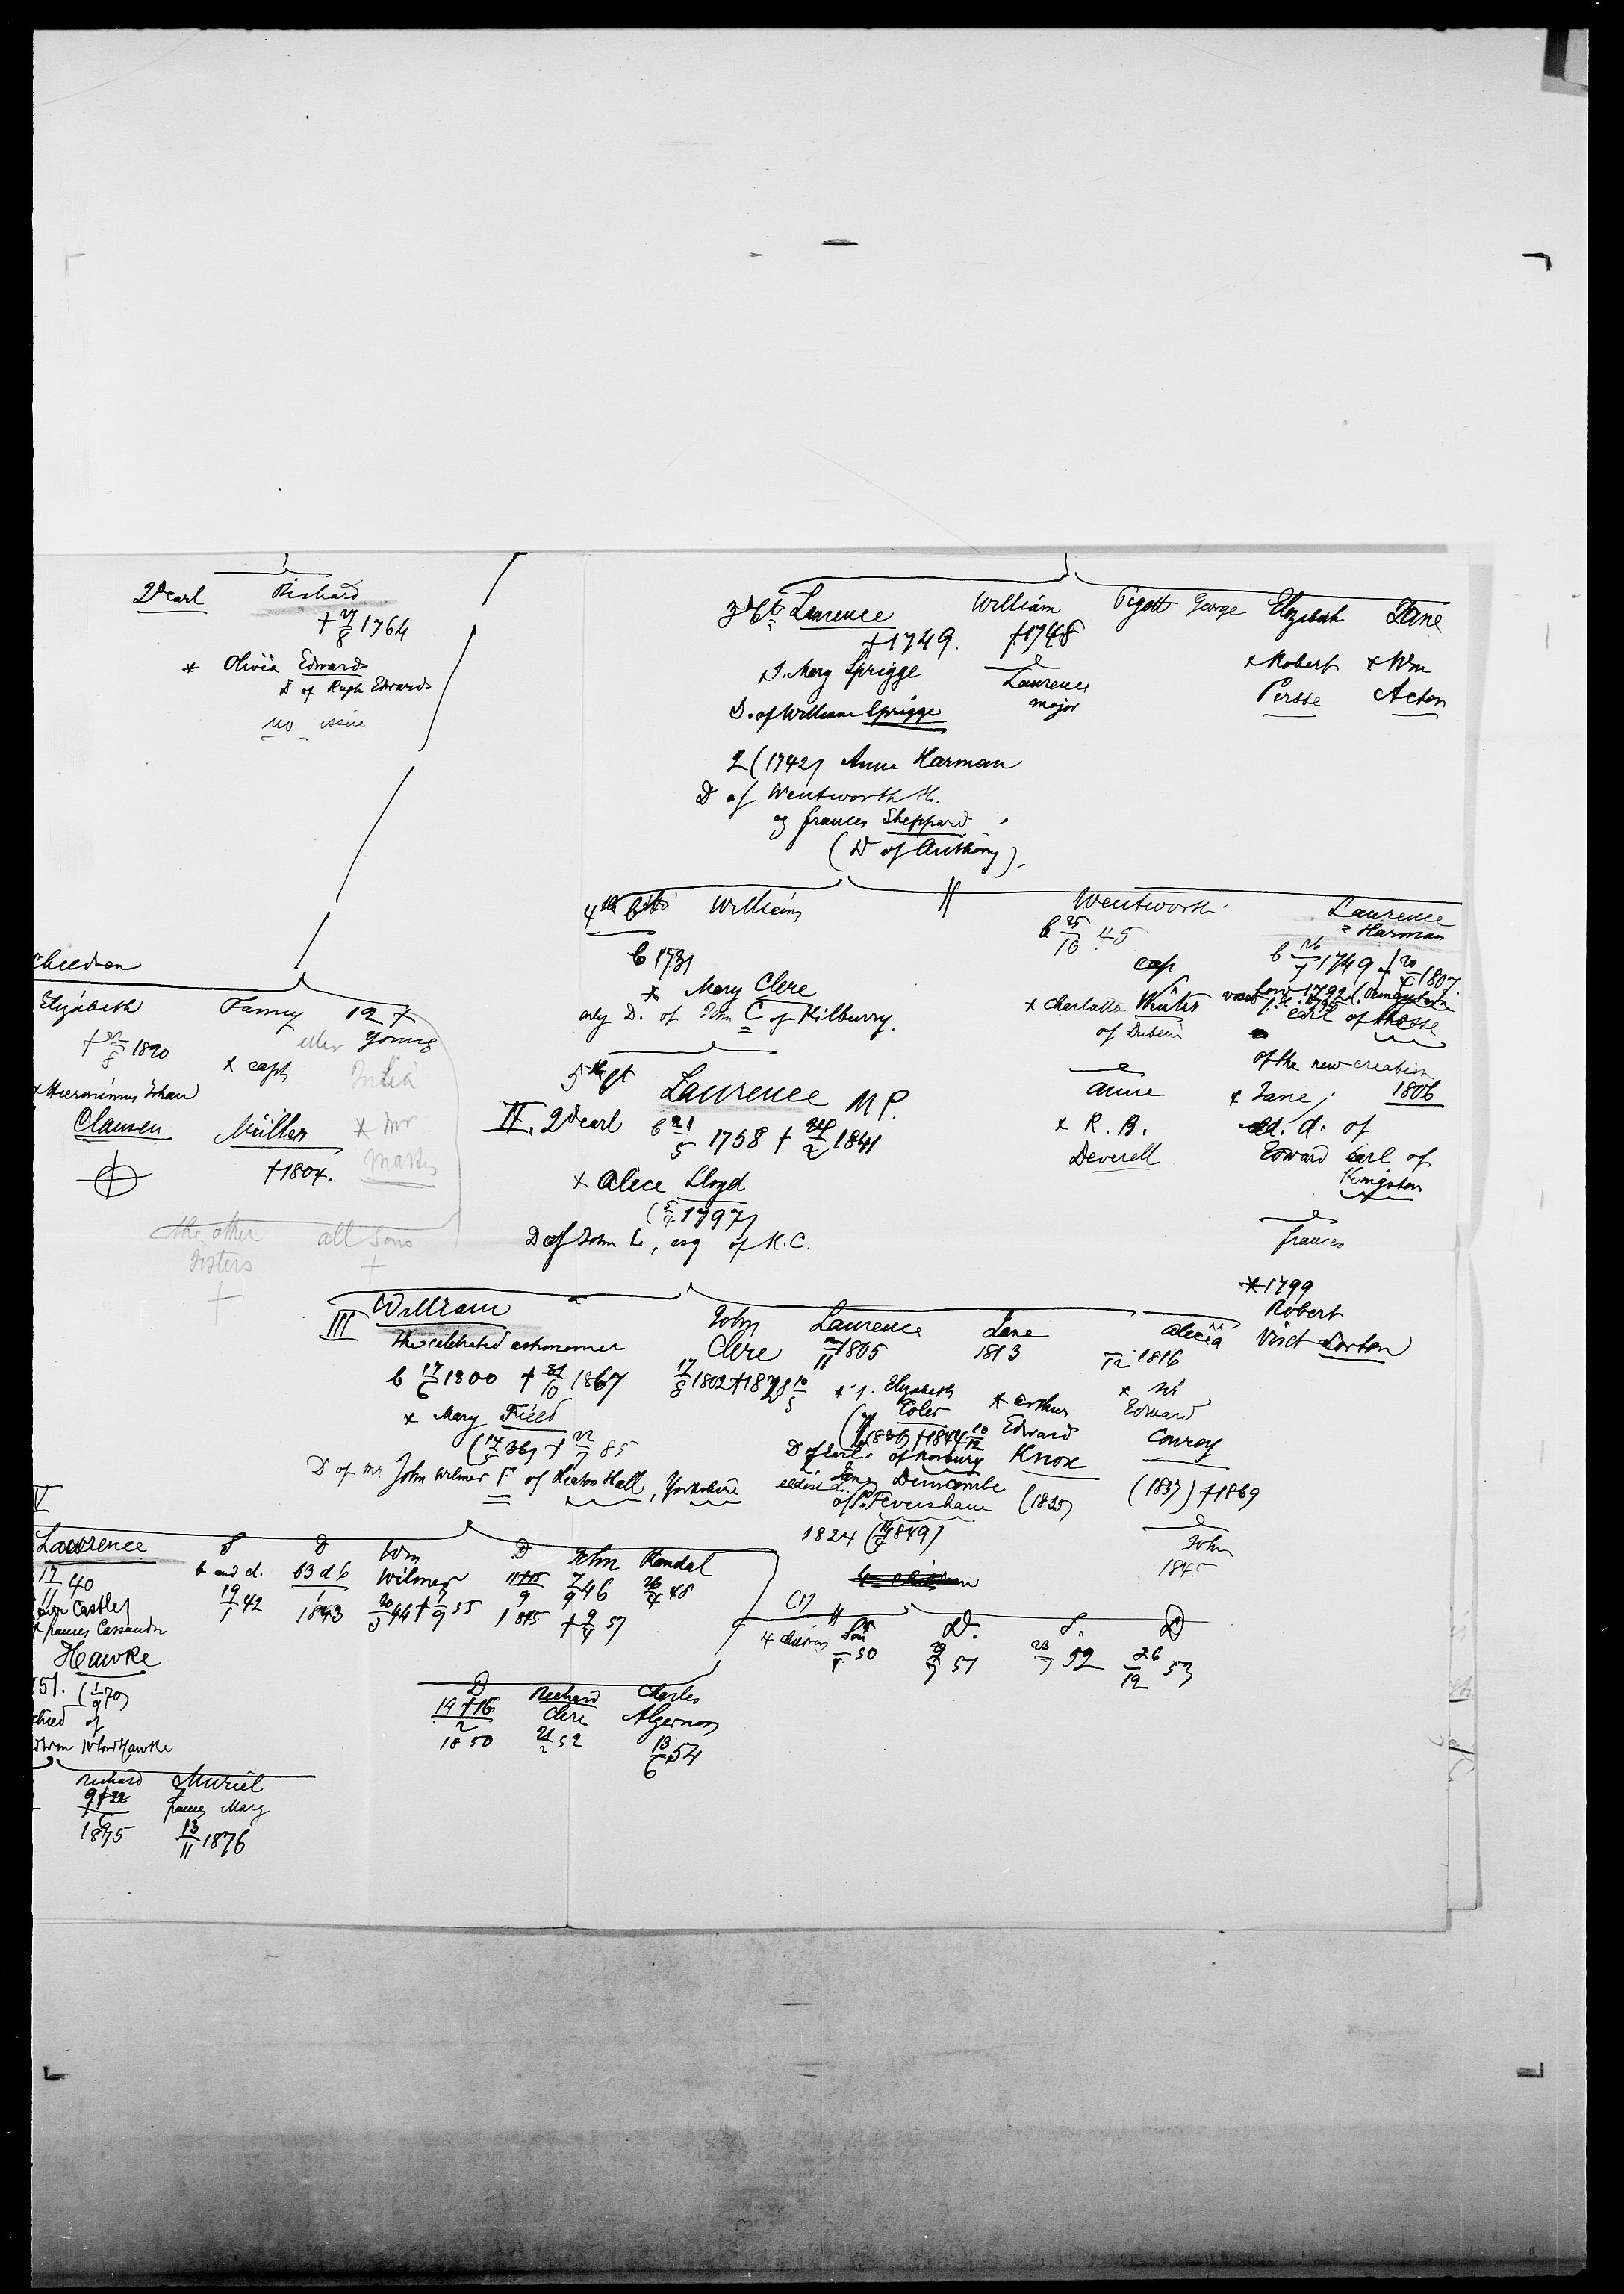 2d earl
Richard
† 27/8 1764
* Olivia Edwards
D of Hugh Edwards
no issue
3d bt Laurence
†1749.
1. Mary Sprigge
D. of William Sprigge
2 (1742) Anne Harman
D of Wentworth H.
og frances Sheppard
(D of Anthony).
William
†1748
Laurence
major
Pigott George Elizabeth Jane
x Robert
Persse
x Wm
Acton
4th btt William
b 1731
x Mary Clere
only D. of John C of Kilburry.
Wentworth
b 25/10 45
cap
x Charlotte Winter
of Dublin
anne
x R. B.
Deverell
Laurence
= Harman
b 1749 † 20/4 1807
earl of Rosse
of the new creation
1806
x Jane;
eld. d. of
Edward earl of
Kingston
frances
* 1799
Robert
Visct Lorton
children
Elizabeth
1820
x Hieronimus Johan
Clausen
Fanny
x capt
Müller
†1804.
12 †
young
x Mr
the other
sisters
†
all sons
†
5th bt Laurence MP.
II. 2d earl b 21/5 1758 † 24/2 1841
x Alice Lloyd
(5/4 1797)
D of John L, esq of K.C.
III William
the celebrated astronomer
b 17/6 1800 † 31/10 1867
x Mary Field
(14/5 36) † 22/7 85
D of Mr John Wilmer F of Heaton Hall, Yorkshire
John
Clere
17/8 1802
Laurence
1805
x 1. Elizabeth
Toler
(1836) †1844 10/12
D of Earl of Norbury
Jane Duncombe
eldest D.
of Ld Feversham
1824 (1849)
Jane
1813
x arthur
Edward
Knox
(1835)
Alicia
1816
x Sir
Edward
Conroy
(1837) †1869
John
184
V
Laurence
17/11 40
x frances Cassandra
Hawke
51. (1/9 70)
child of
S
b and d.
19/1 42
D
b 3 d 6
1
1843
Wm
Wilmer
† 7/9 55
D
9
1845
John
7/9 46
† 9/4 57
Randal
26/4 48
4 children
Son
50
D.
51
S.
23/7 52
D
26/12 53
D
14 † 16
2
1850
Richard
Clere
21/2 52
Charles
Algernon
13/6 54
Richard
9 † 22
1875
Muriel
frances Mary
13/11 1876